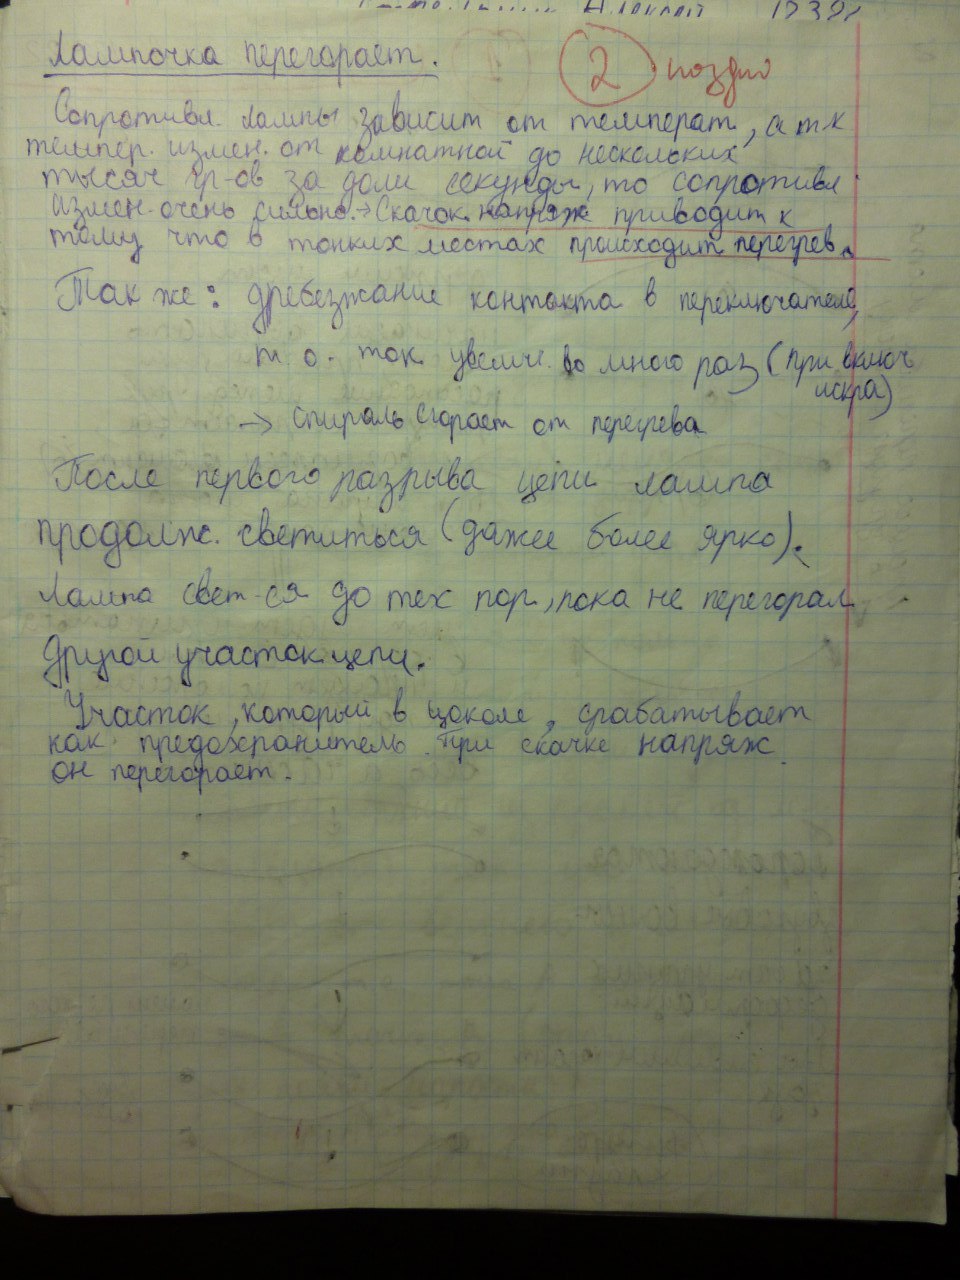 Алексей 1939г
Лампочка перегорает.
2 поздно
Сопротивл. лампы зависит от температ, а т к
темпер. измен. от комнатной до нескольких
тысяч гр-ов за доли секунды, то сопротивл
измен. очень сильно. → Скачок напряж приводит к
тому что в тонких местах происходит перегрев.
Так же: дребезжание контакта в переключателе,
т. о. ток увелич. во много раз (при включ
искра)
→ спираль сгорает от перегрева
После первого разрыва цепи лампа
продолж. светиться (даже более ярко).
Лампа свет-ся до тех пор, пока не перегорал
другой участок цепи.
Участок, который в цоколе, срабатывает
как предохранитель. При скачке напряж.
он перегорает.